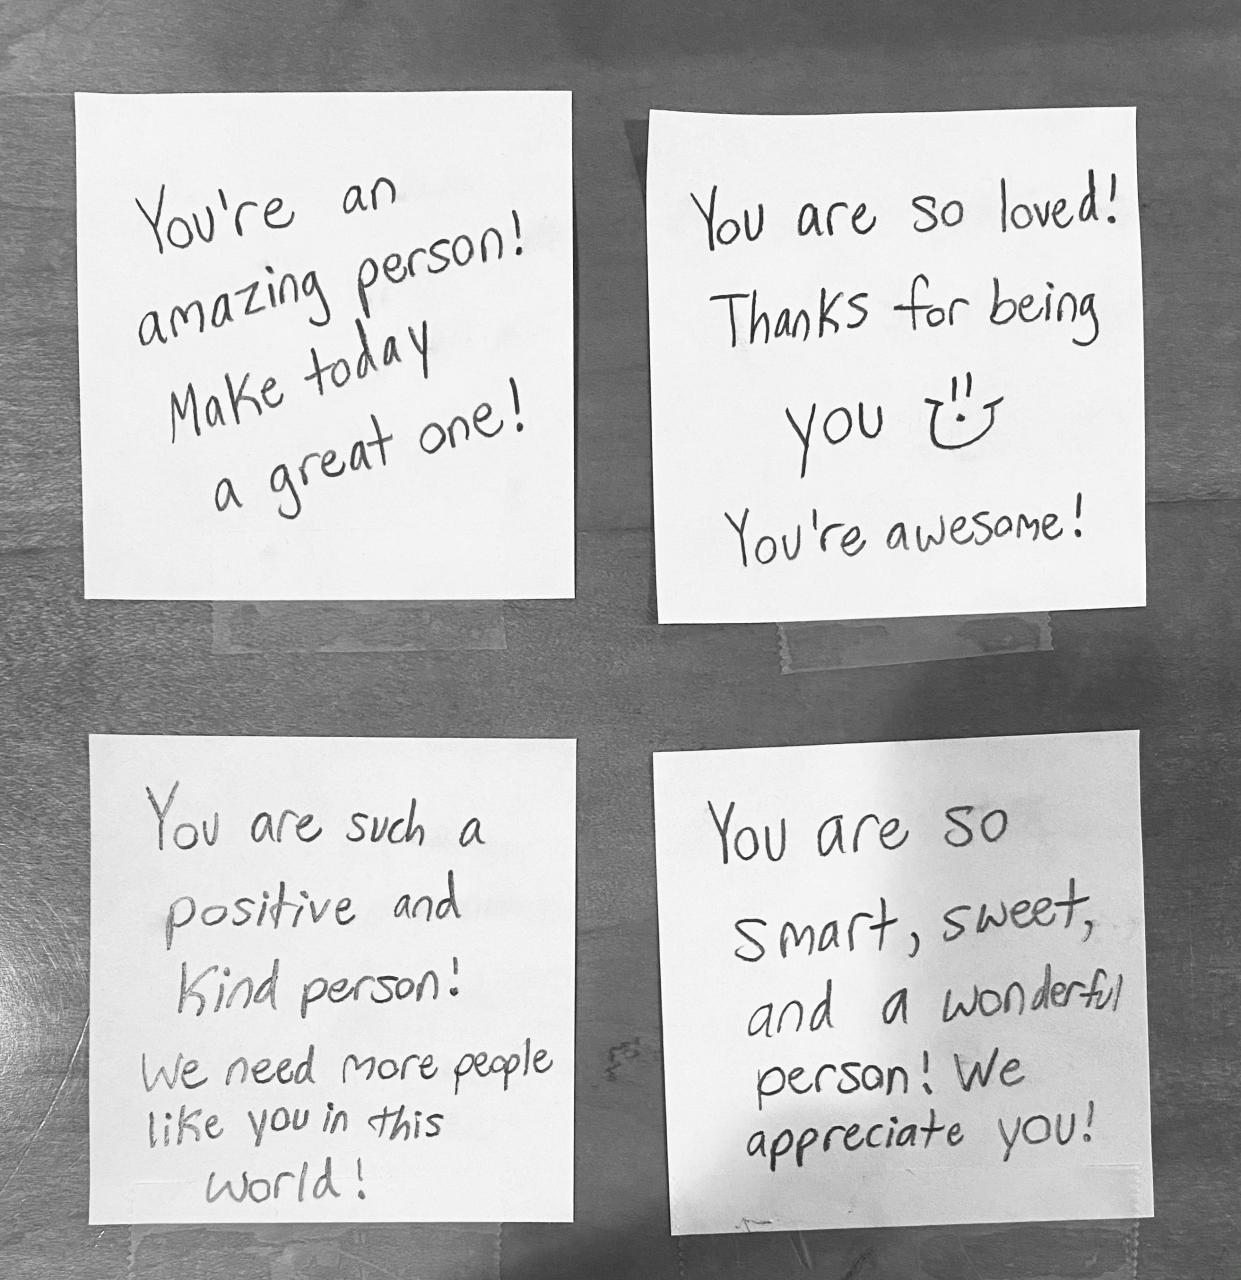 You're an
amazing person!
Make today
a great one!
You are so loved!
Thanks for being
you
You're awesome!
You are such a
positive and
kind person!
We need more people
like you in this
world!
You are so
smart, sweet,
and a wonderful
person! We
appreciate you!